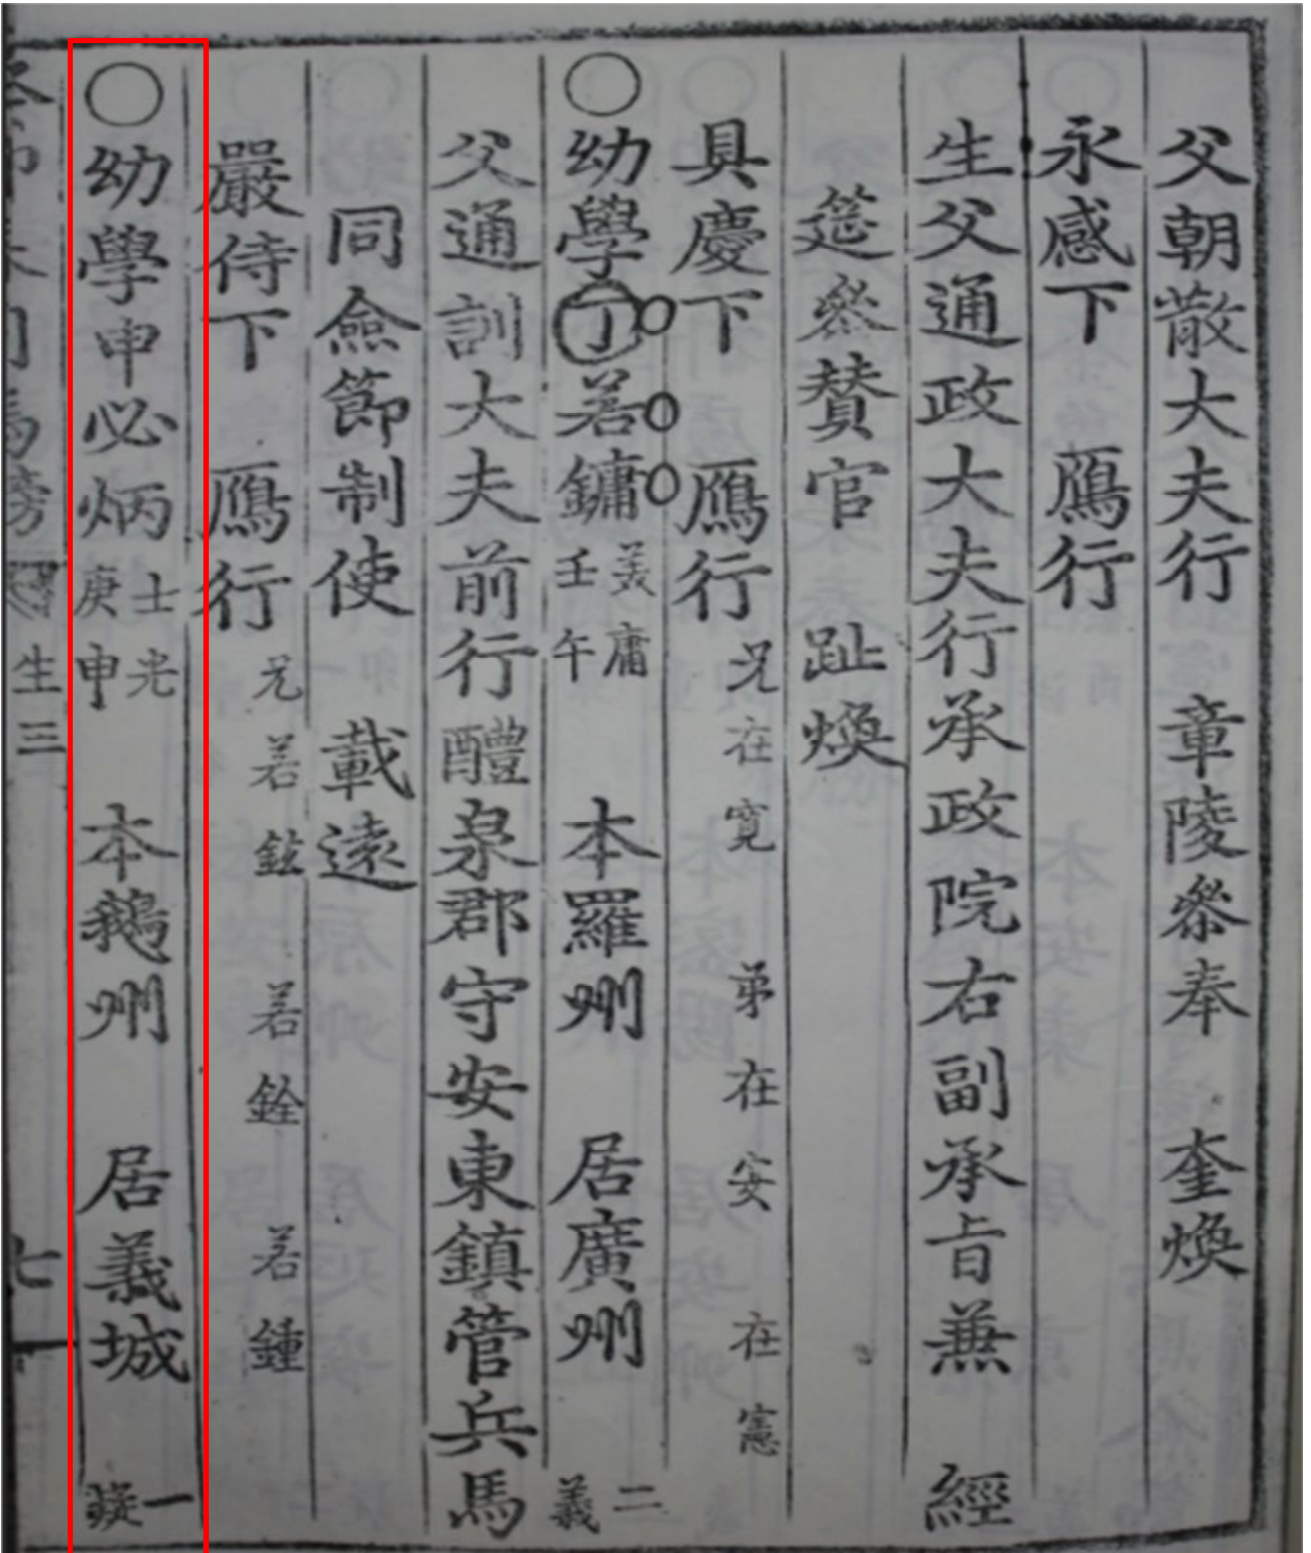 父朝散大夫行 章陵叅奉 奎煥
永感下 鴈行
生父通政大夫行承政院右副承旨兼 經
筵叅贊官 趾煥
具慶下 鴈行 兄在寬 弟在安 在憲
○幼學丁若鏞 壬午 美庸 本羅州 居廣州 二義
父通訓大夫前行醴泉郡守安東鎮管兵馬
同僉節制使 載遠
嚴侍下 鴈行 兄若鉉 若銓 若鍾
○幼學申必炳 庚申 士光 本鵝州 居義城 一疑
生三
七